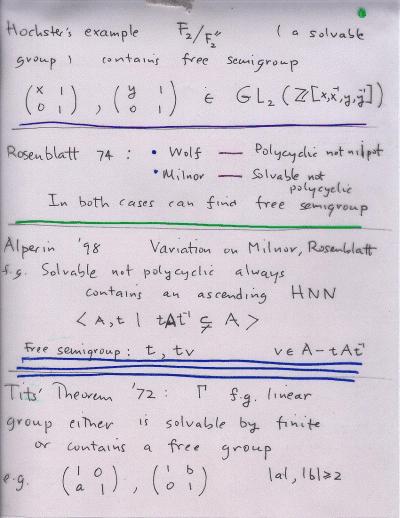 Hochster's example F₂/F₂″ ( a solvable
group ) contains free semigroup
(x 1 / 0 1), (y 1 / 0 1) ∈ GL₂(ℤ[x,x⁻¹,y,y⁻¹])
Rosenblatt 74 : • Wolf — Polycyclic not nilpot
• Milnor — Solvable not
polycyclic
In both cases can find free semigroup
Alperin '98 Variation on Milnor, Rosenblatt
f.g. Solvable not polycyclic always
contains an ascending HNN
< A, t | tAt⁻¹ ⊊ A >
Free semigroup : t, tv v ∈ A - tAt⁻¹
Tits' Theorem '72 : Γ f.g. linear
group either is solvable by finite
or contains a free group
e.g. (1 0 / a 1), (1 b / 0 1) |a|, |b| ≥ 2